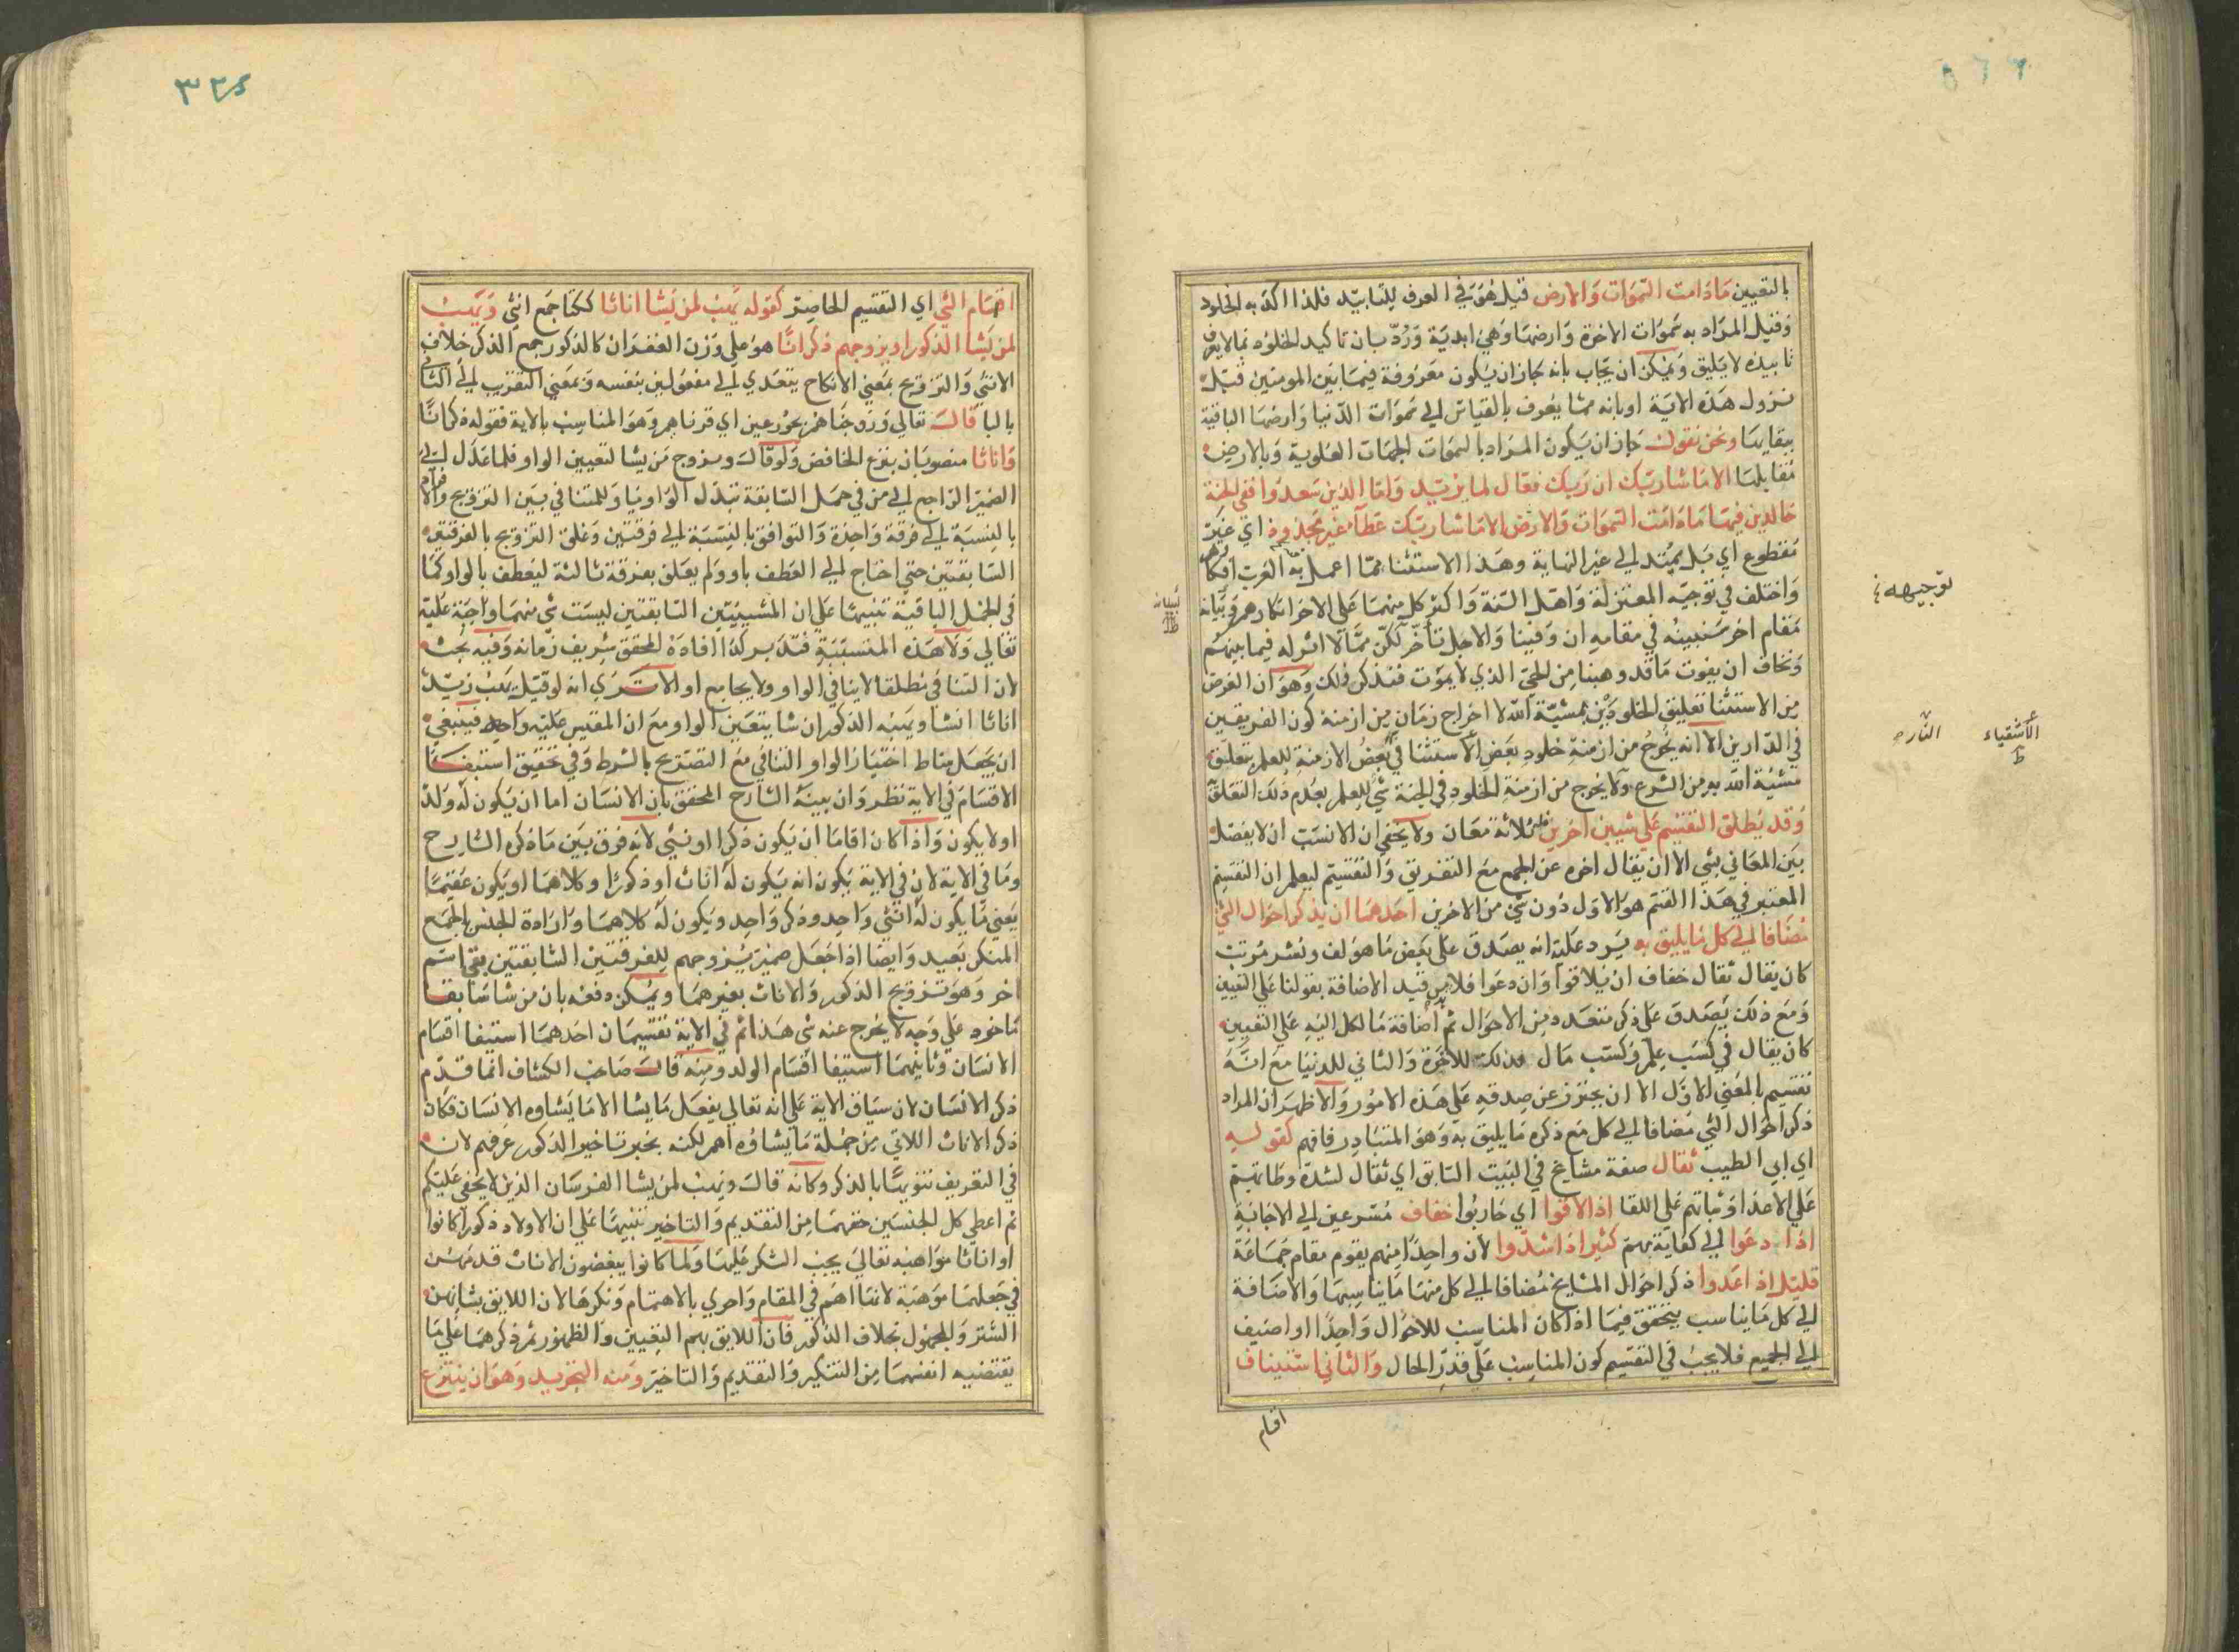 بالتعيين مادامت السموات والارض قيل هو في العرف للتابيد فلذا اكد به الخلود
وقيل المراد به سموات الاخرة وارضها وهي ابدية ورد بان تاكيد الخلود بما لا يعرف
تابيده لا يليق ويمكن ان يجاب بانه جاز ان يكون معروفة فيما بين المومنين قبل
نزول هذه الاية او بانه مما يعرف بالقياس الي سموات الدنيا وارضها الباقية
ببقايها ونحن نقول جاز ان يكون المراد بالسموات الجهات العلوية وبالارض
مقابلها الا ما شا ربك ان ربك فعال لما يريد واما الذين سعدوا ففي الجنة
خالدين فيها مادامت السموات والارض الا ما شا ربك عطآ غير مجذوذ اي غير
مقطوع اي بل يمتد الي غير النهاية وهذا الاستثنا مما اعمل به العرب افكارهم
واختلف في توجيه المعتزلة واهل السنة واكثر كل منهما علي الاخر انكارهم وبيانه
مقام اخر سنبينه في مقامه ان وفينا والاجل تاخر لكن مما لا اثر له فيما بينهم
ونخاف ان يفوت ما قد وهبنا من الحي الذي لا يموت فنذكر ذلك وهو ان الغرض
من الاستثنا تعليق الخلودين بمشية الله لا اخراج زمان من ازمنة كون الفريقين
في الدارين الا انه يخرج من ازمنة خلود بعض الاستثنا في بعض الازمنة للعلم بتعليق
مشية الله به من الشرع ولا يخرج من ازمنة الخلود في الجنة شي للعلم بعدم ذلك التعلق
وقد يطلق التقسيم علي شيين اخرين فله ثلاثة معان ولا يخفي ان الانسب ان لا يفصل
بين المعاني بشي الا ان يقال اخره عن الجمع مع التفريق والتقسيم ليعلم ان التقسيم
المعتبر في هذا القسم هو الاول دون شي من الاخرين احدهما ان يذكر احوال الشي
مضافا الي كل ما يليق به يرد عليه انه يصدق علي بعض ما هو لف ونشر مرتب
كان يقال ثقال خفاف ان يلاقوا وان دعوا فلا بد من قيد الاضافة بقولنا علي التعيين
ومع ذلك يصدق علي ذكر متعدد من الاحوال ثم اضافة ما لكل اليه علي التعيين
كان يقال في كسب علم وكسب مال فذلك للاخرة والثاني للدنيا مع انه
تقسيم بالمعني الاول الا ان يحترز عن صدقه علي هذه الامور والاظهر ان المراد
ذكر احوال الشي مضافا الي كل مع ذكره ما يليق به وهو المتبادر فافهم كقوله
اي ابي الطيب ثقال صفة مشايخ في البيت السابق اي ثقال لشدة وطاتهم
علي الاعدا وثباتهم علي اللقا اذا لاقوا اي حاربوا خفاف مسرعين الي الاجابة
اذا دعوا الي كفاية مهم كثير اذا شدوا لان واحدا منهم يقوم مقام جماعة
قليل اذا عدوا ذكر احوال المشايخ مضافا الي كل منها ما يناسبها والاضافة
الي كل ما يناسب يتحقق فيما اذا كان المناسب للاحوال واحدا او اضيف
الي الجميع فلا يجب في التقسيم كون المناسب علي قدر الحال والثاني استيفاف
اقسام
توجيهه
الاشقياء
النار
اقسام الشي اي التقسيم الحاصر كقوله يهب لمن يشا اناثا ككتا جمع انثي ويهب
لمن يشا الذكور او يزوجهم ذكرانا هو علي وزن الغفران كالذكور جمع الذكر خلاف
الانثي والتزويج بمعني الانكاح يتعدي الي مفعولين بنفسه وبمعني التقريب الي الثاني
بالبا قال تعالي وزوجناهم بحور عين اي قرناهم وهو المناسب بالاية فقوله ذكرانا
واناثا منصوبان بنزع الخافض ولو قال ويزوج من يشا لتعيين الواو فلما عدل الي
الضمير الراجع الي من في جمل السابقة تبدل الواو نيا وللتنافي بين التزويج والافراد
بالنسبة الي فرقة واحدة والتوافق بالنسبة الي فرقتين وعلق التزويج بالفرقتين
السابقتين حتي احتاج الي العطف باو ولم يعلق بفرقة ثالثة ليعطف بالواو كما
في الجمل الباقية تنبيها علي ان المشيتين السابقتين ليست شي منهما واجبة عليه
تعالي ولا هذه المتسببة فتدبر كذا افاده المحقق شريف زمانه وفيه بحث
لان التنافي مطلقا لا ينافي الواو ولا يجامع او الا تري انه لو قيل يهب زيد
اناثا ان شا ويهبه الذكور ان شا يتعين الواو مع ان المقيس عليه واحد فينبغي
ان يجعل مناط اختيار الواو التنافي مع التصريح بالشرط وفي تحقيق استيفا
الاقسام في الاية نظر وان بينه الشارح المحقق بان الانسان اما ان يكون له ولد
اولا يكون واذا كان اما ان يكون ذكرا او نثي لانه فرق بين ما ذكره الشارح
وما في الاية لان في الاية يكون انه يكون له اناث او ذكورا وكلاهما او يكون عقيما
يعني ما يكون له انثي واحد وذكر واحد ويكون له كلاهما وارادة الجنس بالجمع
المنكر بعيد وايضا اذا جعل ضمير يزوجهم للفرقتين السابقتين بقي اسم
اخر وهو تزويج الذكور والاناث بغيرهما ويمكن دفعه بان من شا سابقا
ماخوذ علي وجه لا يخرج عنه شي هذا ثم في الاية تقسيمان احدهما استيفا اقسام
الانسان وثانيهما استيفا اقسام الولد ومنه قال صاحب الكشاف انما قدم
ذكر الانسان لان سياق الاية علي انه تعالي يفعل ما يشا الا ما يشاوه الانسان فكان
ذكر الاناث اللاتي من جملة ما يشاؤه اهم لكنه بجبر تاخير الذكور عرفهم لان
في التعريف تنويها بالذكر وكانه قال ويهب لمن يشا الفرسان الذين لا يخفي عليكم
ثم اعطي كل الجنسين حقهما من التقديم والتاخير تنبيها علي ان الاولاد ذكورا كانوا
او اناثا مواهبه تعالي يجب الشكر عليها ولما كانوا يبغضون الاناث قدمهن
في جعلها موهبة لانها اهم في المقام واحري بالاهتمام ونكرها لان اللايق بشانهن
الستر والخمول بخلاف الذكور فان اللايق بهم التعيين والظهور ثم ذكرهما علي ما
يقتضيه انفسهما من التنكير والتقديم والتاخير ومنه التجريد وهو ان ينتزع